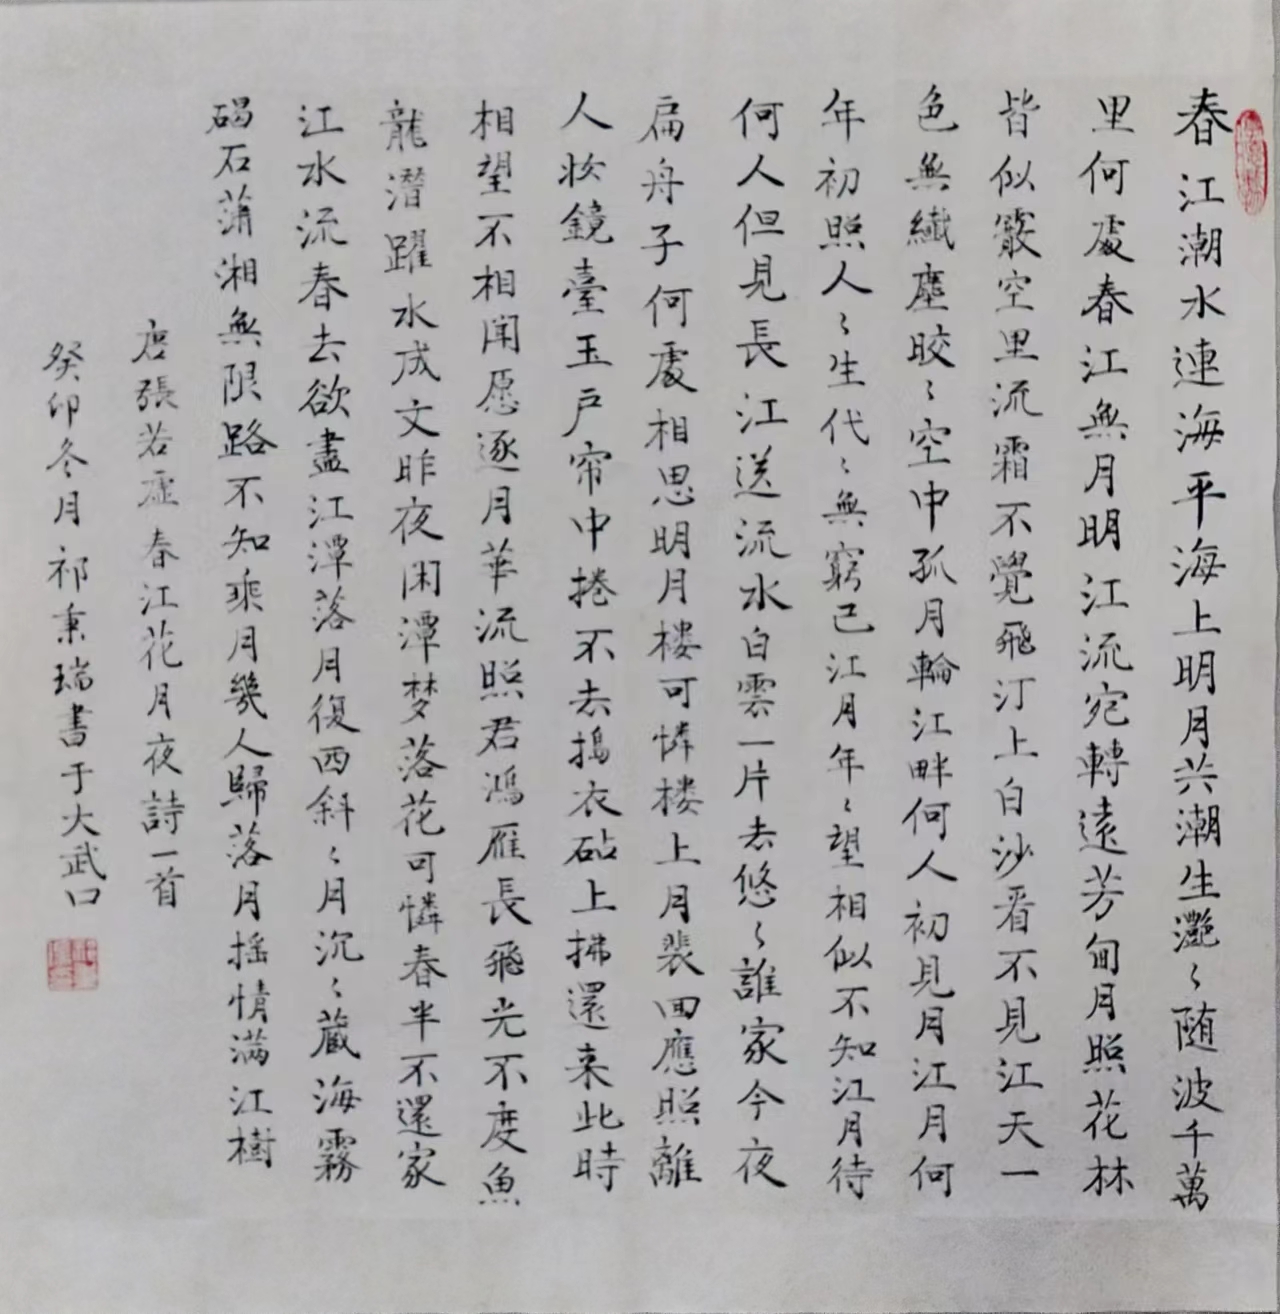 春江潮水連海平海上明月共潮生灔〻随波千萬
里何處春江無月明江流宛轉遶芳甸月照花林
皆似霰空里流霜不覺飛汀上白沙看不見江天一
色無纖塵皎〻空中孤月輪江畔何人初見月江月何
年初照人〻生代〻無窮已江月年〻望相似不知江月待
何人但見長江送流水白雲一片去悠〻誰家今夜
扁舟子何處相思明月楼可憐楼上月裴回應照離
人妝鏡臺玉戸帘中捲不去搗衣砧上拂還来此時
相望不相聞愿逐月華流照君鴻雁長飛光不度魚
龍潛躍水成文昨夜閑潭梦落花可憐春半不還家
江水流春去欲盡江潭落月復西斜〻月沉〻藏海霧
碣石蒲湘無限路不知乘月幾人歸落月揺情满江樹
唐張若虛春江花月夜詩一首
癸卯冬月祁秉瑞書于大武口